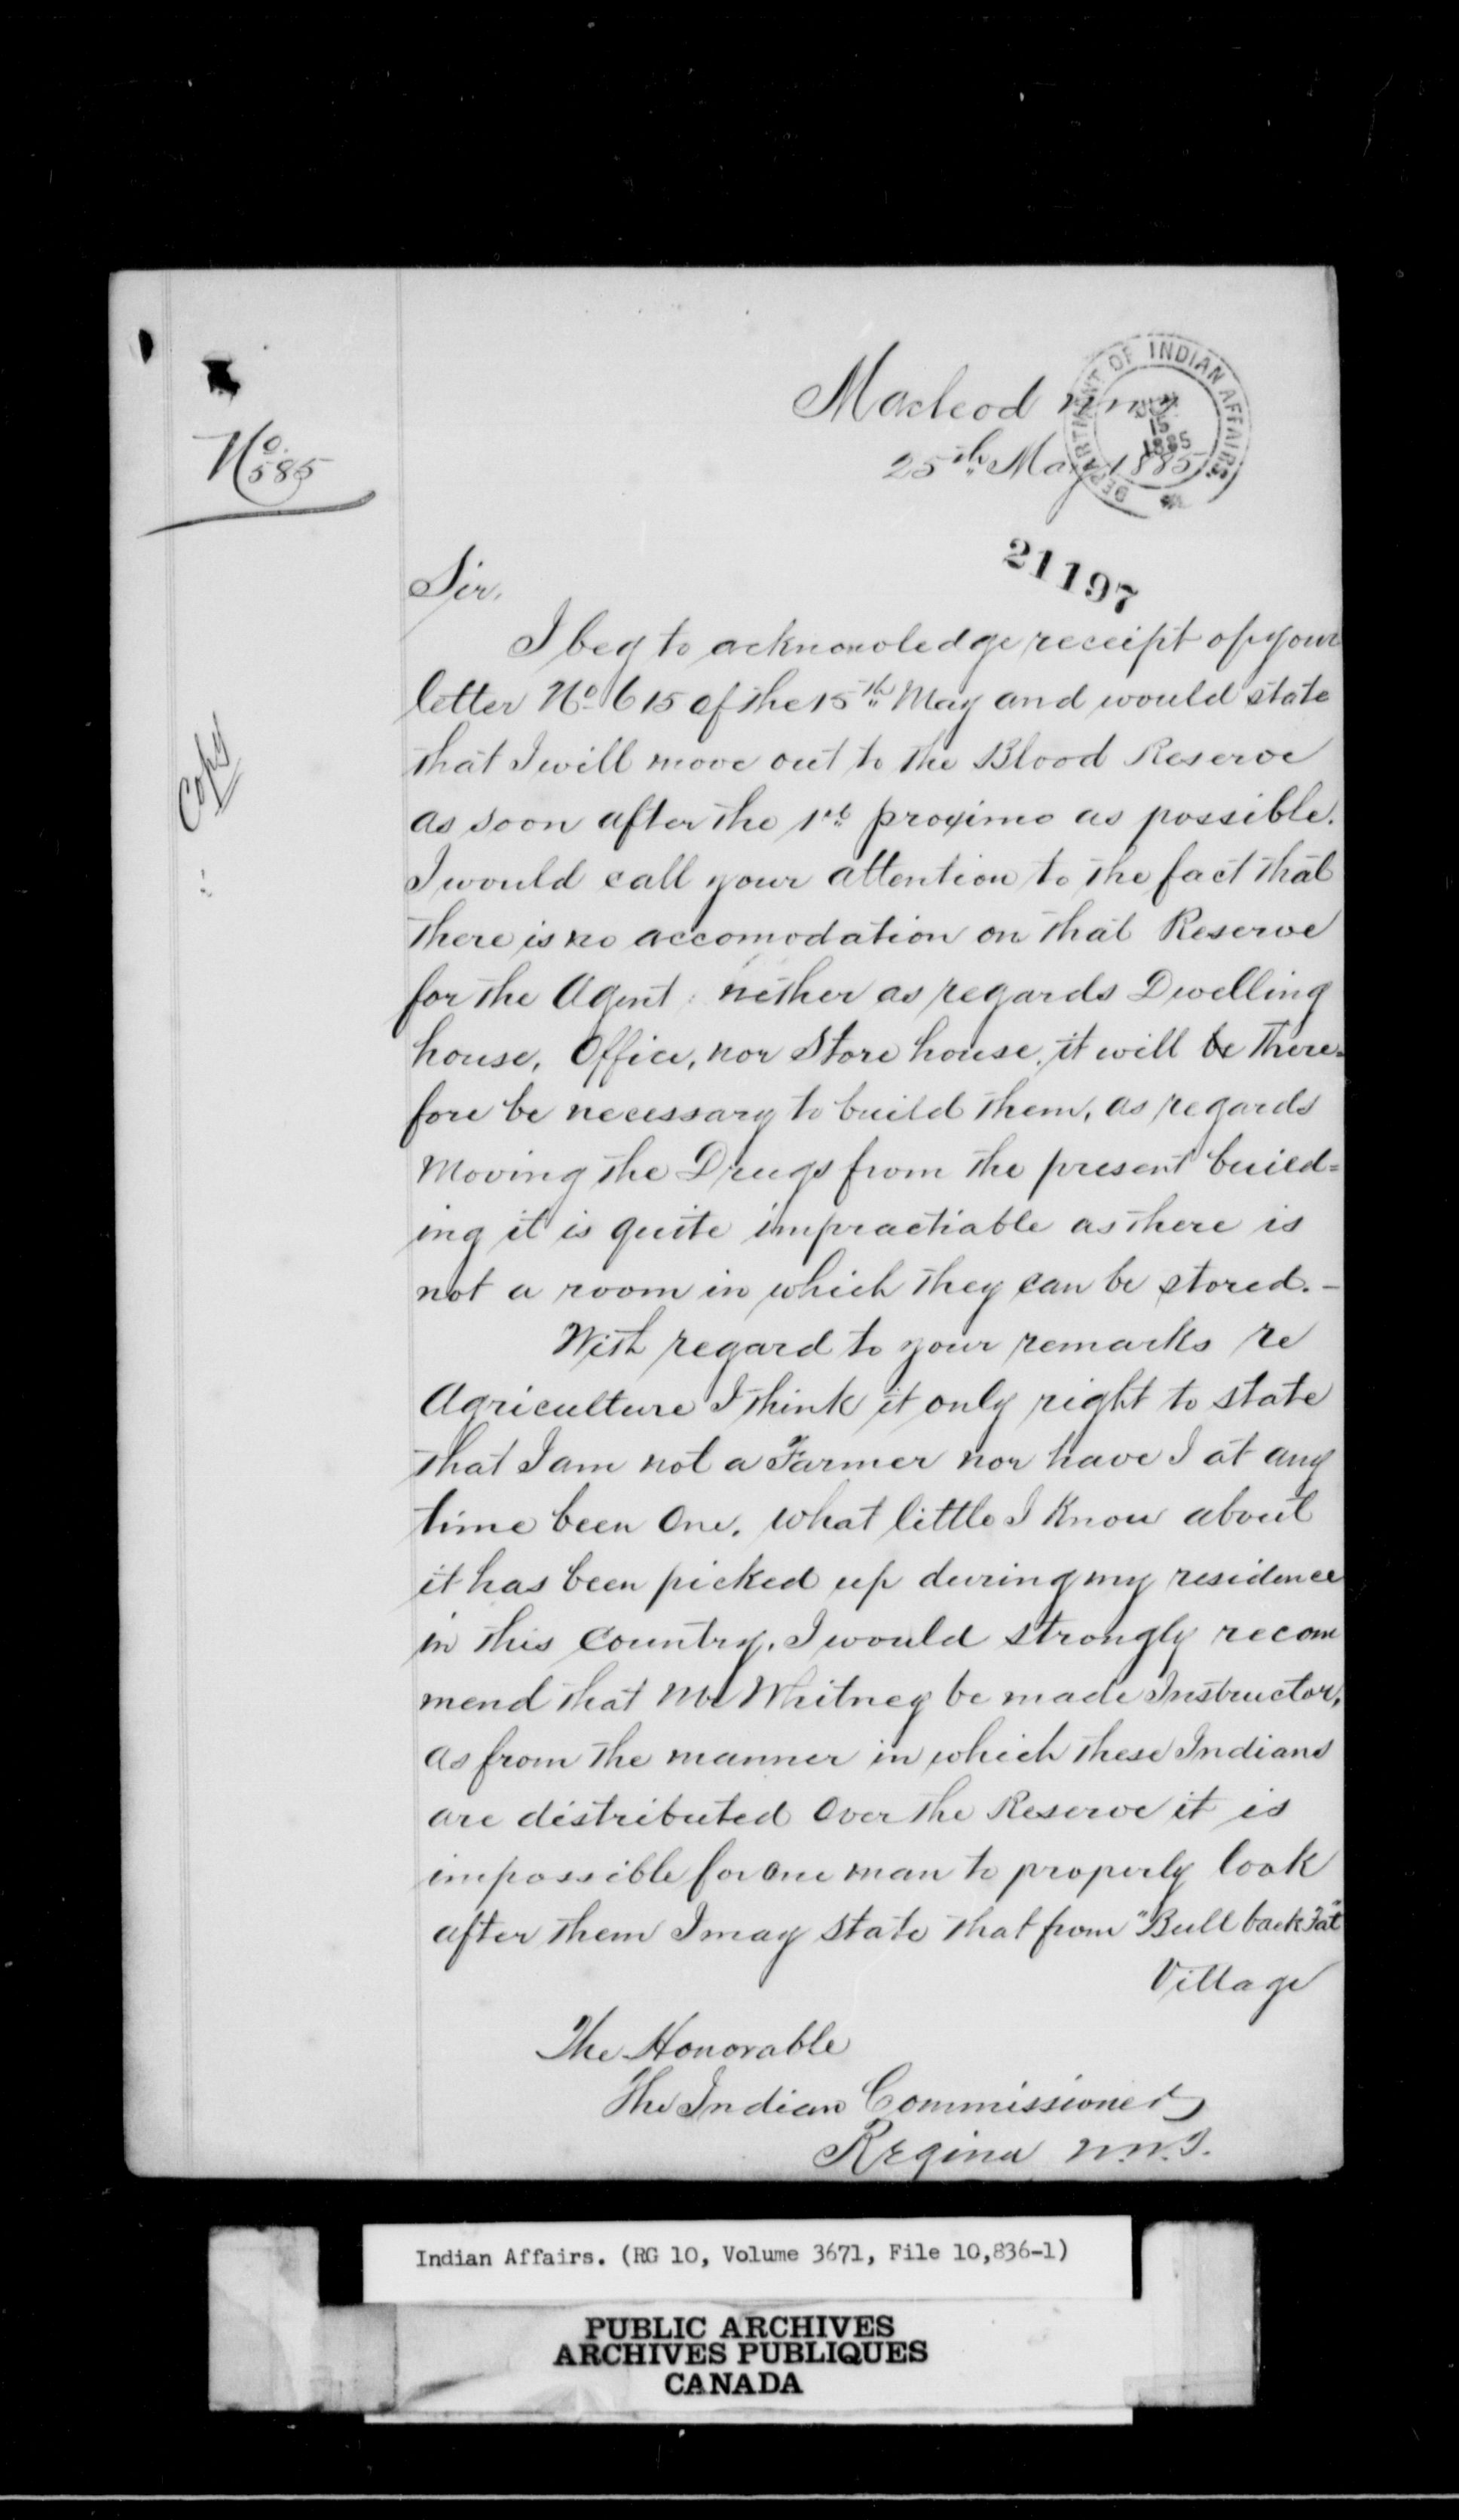 No. 585
Copy
Macleod N.W.T.
25th May 1885
DEPARTMENT OF INDIAN AFFAIRS
15
1885
21197
Sir,
I beg to acknowledge receipt of your
letter No 615 of the 15th May and would state
that I will move out to the Blood Reserve
as soon after the 1st proximo as possible.
I would call your attention to the fact that
there is no accomodation on that Reserve
for the Agent: nether as regards Dwelling
house, Office, nor Store house, it will be there=
fore be necessary to build them, as regards
Moving the Drugs from the present build=
ing it is quite impractiable as there is
not a room in which they can be stored. -
With regard to your remarks re
Agriculture I think it only right to state
that I am not a Farmer nor have I at any
time been One. What little I know about
it has been picked up during my residence
in this Country. I would strongly recom
mend that Mr Whitney be made Instructor,
as from the manner in which these Indians
are distributed Over the Reserve it is
impossible for One man to properly look
after them I may state that from "Bull back Fat"
Village
The Honorable
The Indian Commissioner
Regina N.W.T.
Indian Affairs. (RG 10, Volume 3671, File 10,836-1)
PUBLIC ARCHIVES
ARCHIVES PUBLIQUES
CANADA